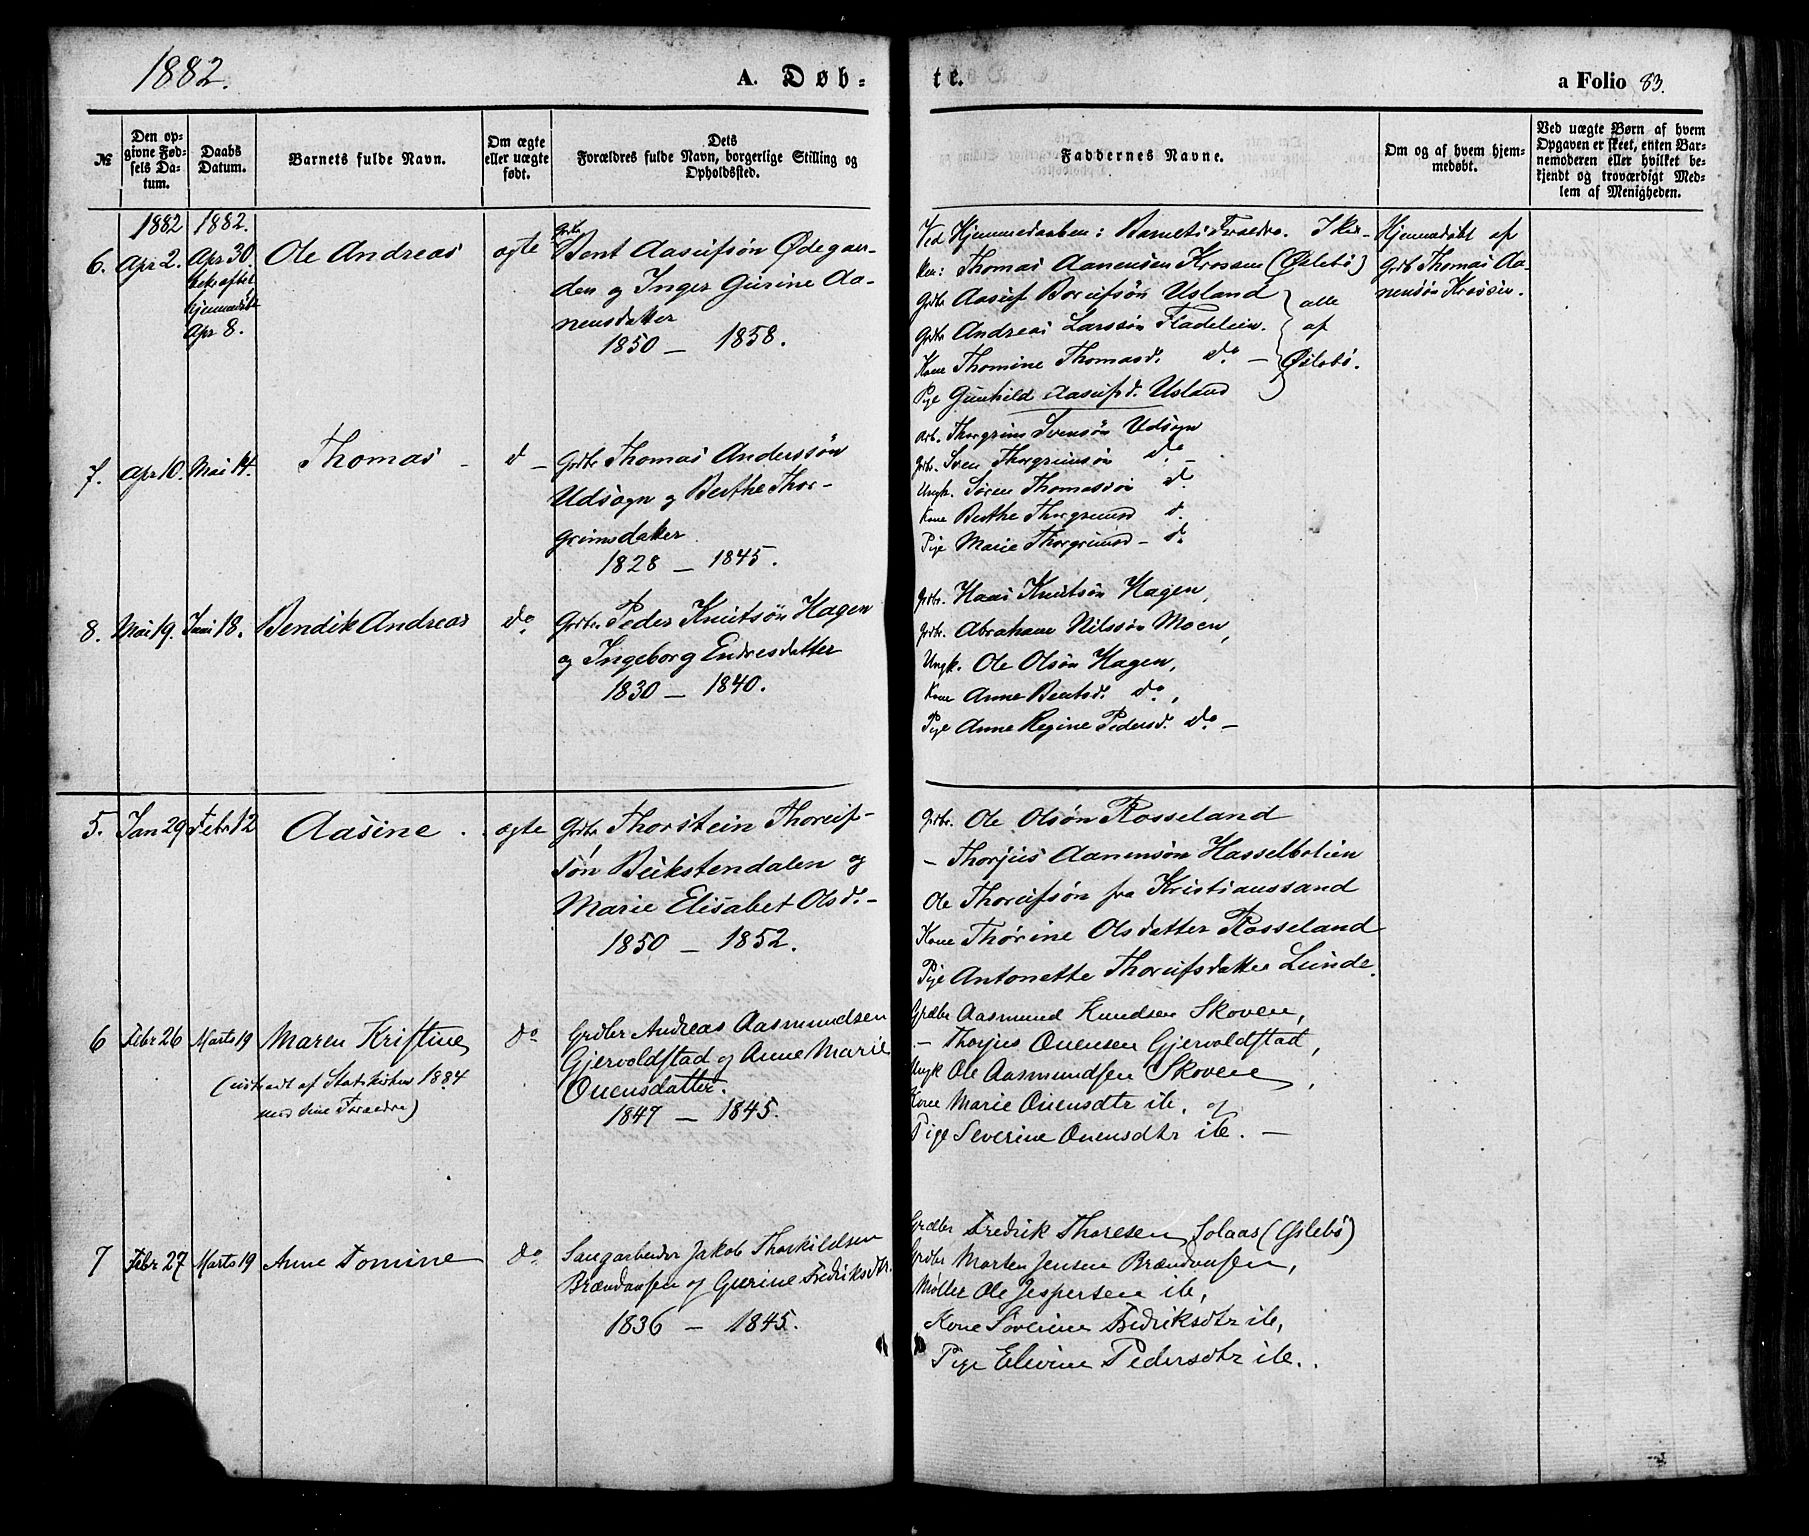 1882.
A. Døb-
te.
a Folio 83.
№
Den op-
givne Fød-
sels Da-
tum.
Daabs
Datum.
Barnets fulde Navn.
Om ægte
eller uægte
født.
Dets
Forældres fulde Navn, borgerlige Stilling og
Opholdssted.
Faddernes Navne.
Om og af hvem hjem-
medøbt.
Ved uægte Børn af hvem
Opgaven er skeet, enten Bar-
nemoderen eller hvilket be-
kjendt og troværdigt Med-
lem af Menigheden.
1882 1882.
6. Apr 2. Apr 30
hjemmedøbt
Apr 8.
Ole Andreas
ægte
Grdbr
Bent Aasulfsøn Ødegaar-
den og Inger Gurine Aa-
nensdatter
1850 — 1858.
Ved Hjemmedaaben: Barnets Forældre. I Kir-
ken: Thomas Aanensen Krossen (Øslebø)
Grdbr Aasulf Borufsøn Usland
Grdbr Andreas Larssøn Fladeleien.
Kone Thomine Thomasd. do —
Pige Gunhild Aasulfsd. Usland
alle
af
Øslebø.
Hjemmedøbt af
Grdb Thomas Aa-
nensøn Krossen.
7. Apr 10. Mai 14.
Thomas —
do —
Grdbr Thomas Anderssøn
Udsogn og Berthe Thor-
grimsdatter
1828 — 1845.
Arb. Thorgrim Svensøn Udsogn
Grdbr. Sven Thorgrimsøn do —
Ungk. Søren Thomassøn do
Kone Berthe Thorgrimsd do
Pige Marie Thorgrimsd — do
8. Mai 19. Juni 18.
Bendik Andreas
do
Grdbr. Peder Knutsøn Hagen
og Ingeborg Endresdatter
1830 — 1840.
Grdbr. Haas Knutsøn Hagen,
Grdbr. Abraham Nilssøn Moen,
Ungk. Ole Olsøn Hagen,
Kone Anne Bentsd. do,
Pige Anne Regine Pedersd. do —
5. Jan 29 Febr 12
Aasine.
ægte
Grdbr Thorstein Thorulf-
søn Beikstendalen og
Marie Elisabet Olsd. —
1850 — 1852.
Grdbr. Ole Olsøn Rosseland
— Thorjus Aanensøn Hasselbolien
Ole Thorulfsøn fra Kristianssand
Kone Thorine Olsdatter Rosseland
Pige Antonette Thorulfsdatter Lunde.
6 Febr 26 Marts 19
Maren Kristine
(udtraadt af Statskirken 1884
med sine Forældre)
do
Grdbr Andreas Aasmundsen
Gjervoldstad og Anne Marie
Ouensdatter.
1847 — 1845.
Grdbr Aasmund Knudsen Skoven,
— Thorjus Ouensen Gjervoldstad,
Ungk Ole Aasmundsen Skoven,
Kone Marie Ouensdtr ib. og
Pige Severine Ouensdtr ib. —
7 Febr 27 Marts 19
Anne Tomine
do
Saugarbeider Jakob Thorkildsen
Brændaasen og Gurine Fredriksdtr.
1836 — 1845.
Grdbr Fredrik Thoresen Solaas (Øslebø)
Grdbr Morten Jensen Brændaasen,
Møller Ole Jespersen ib,
Kone Severine Fredriksdtr ib,
Pige Elevine Pedersdtr ib.